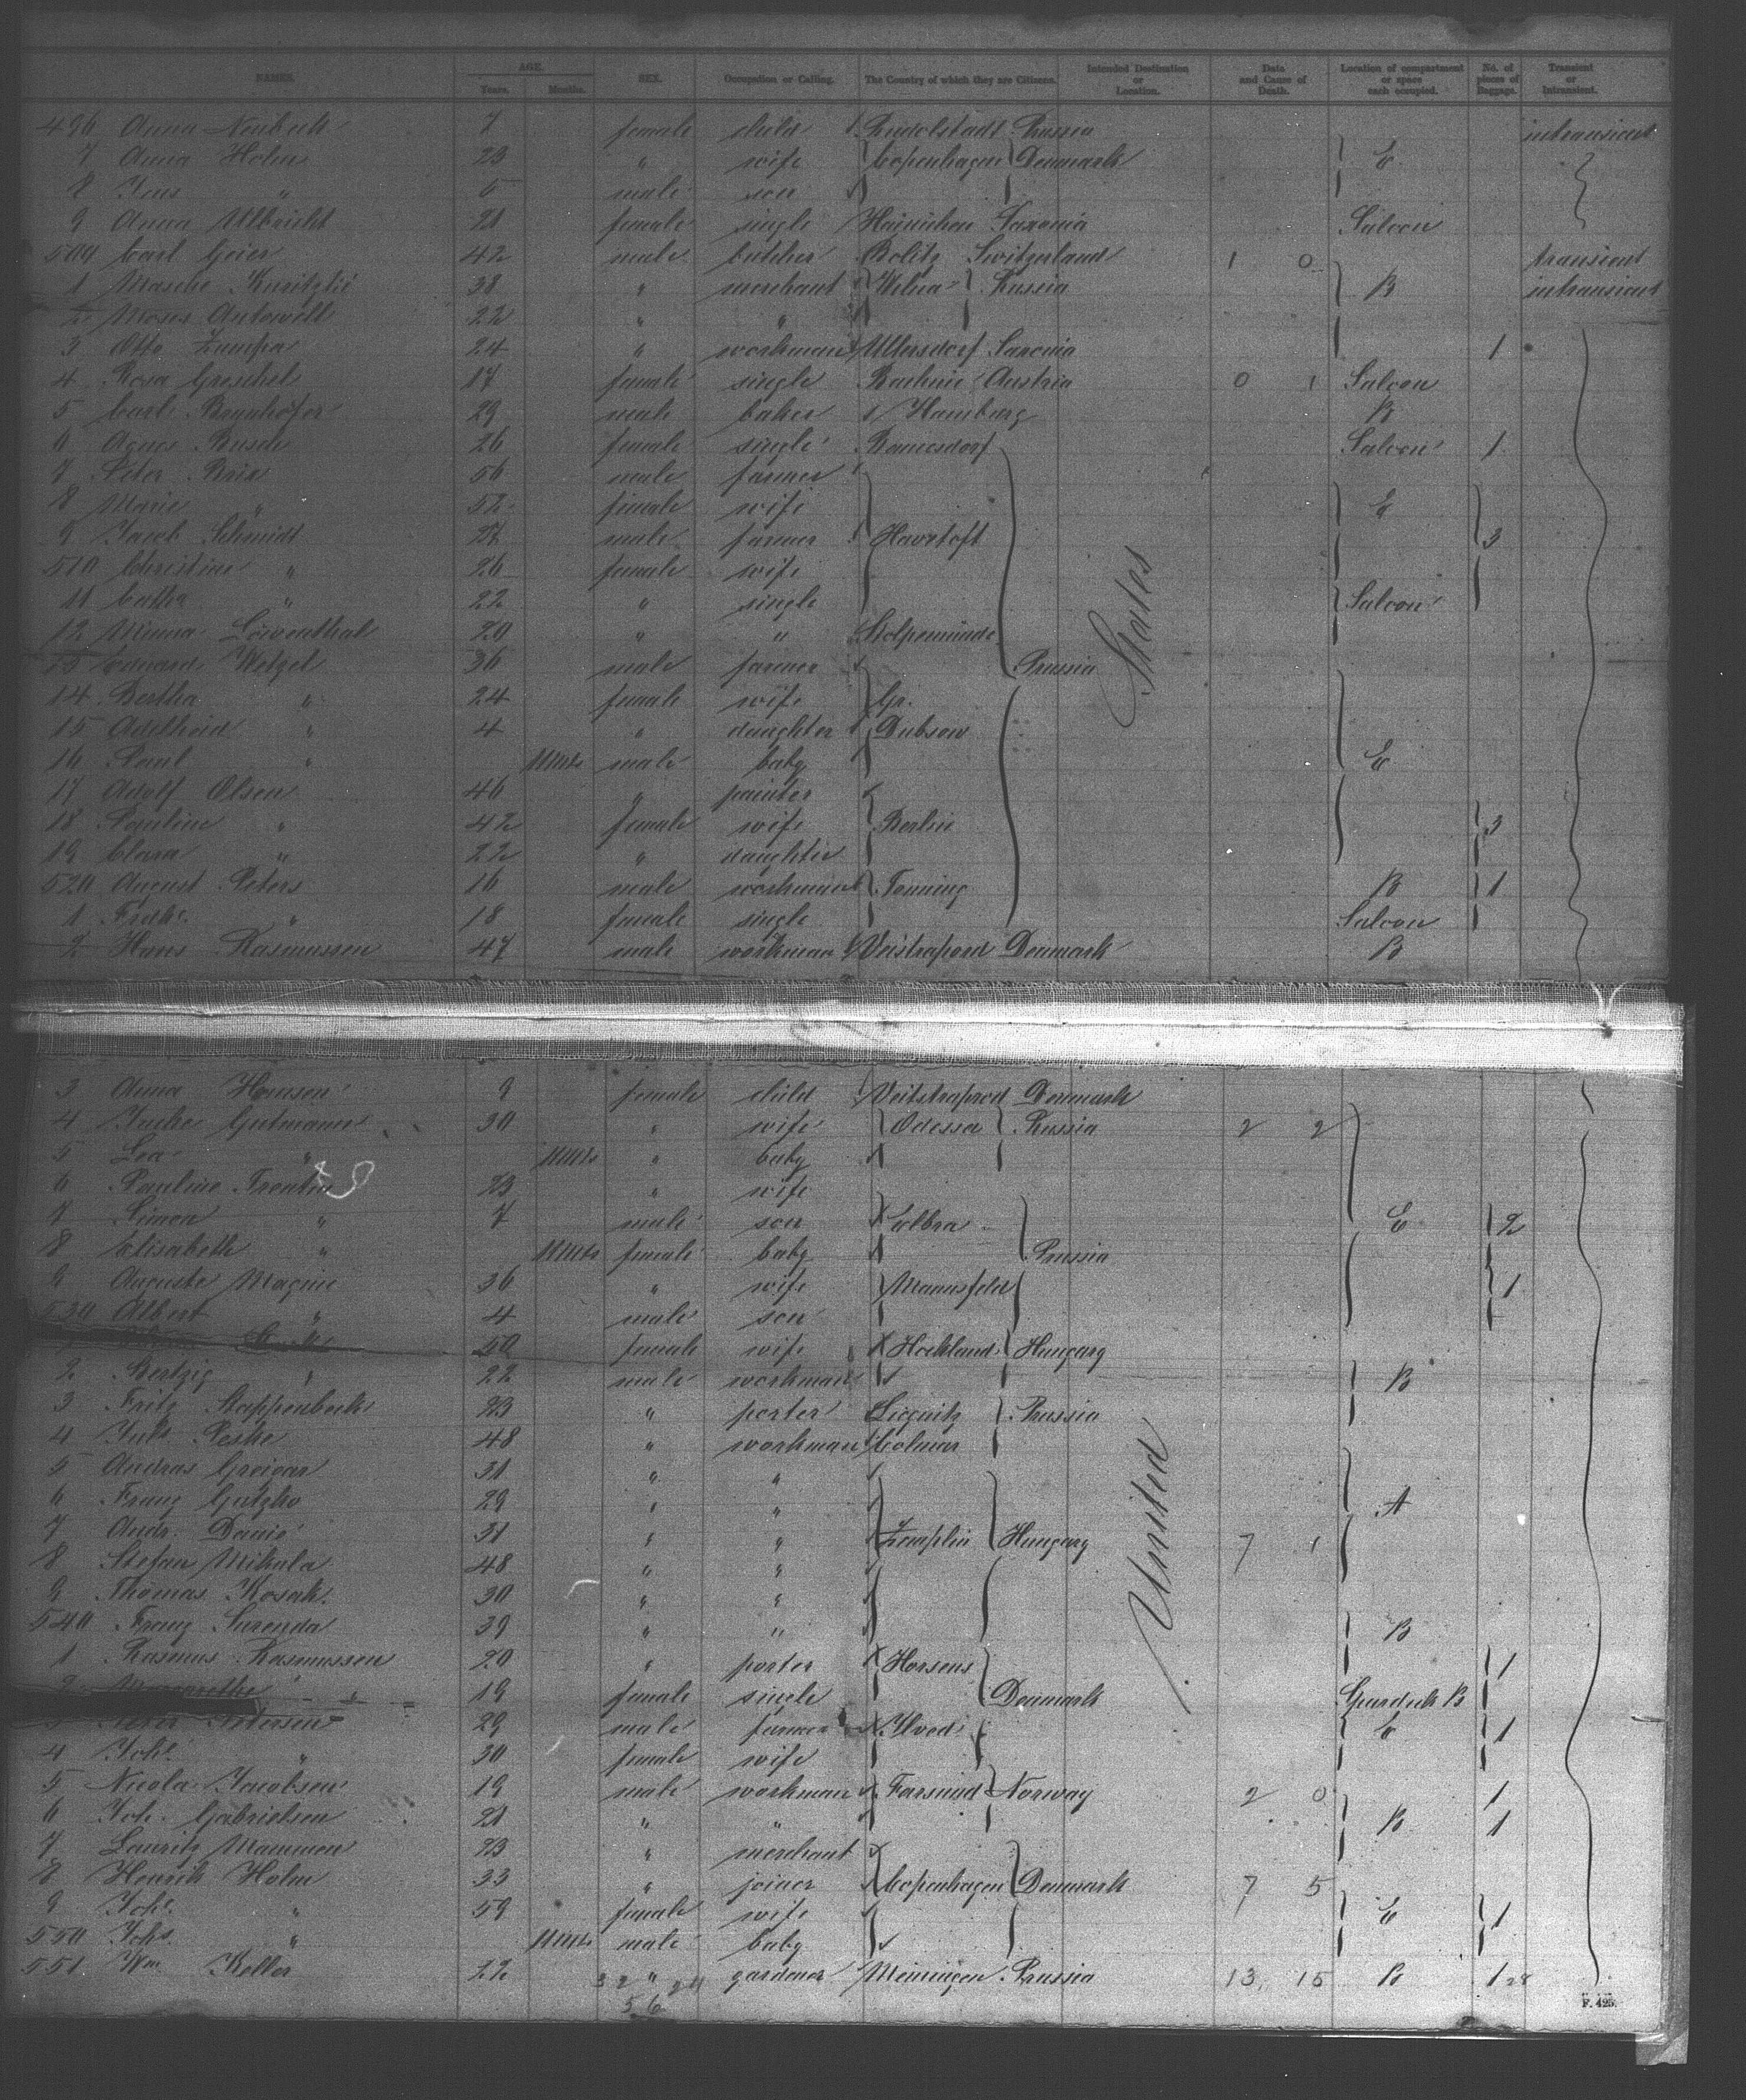 NAMES. AGE. Years. Months. SEX. Occupation or Calling. The Country of which they are Citizens. Intended Destination or Location. Date and Cause of Death. Location of compartment or space each occupied. No. of pieces of Baggage. Transient or Intransient.
496 Anna Neubeck 7 female child Rudolstadt Prussia intransient
7 Anna Holm 23 " wife Copenhagen Denmark E
8 Jens " 5 male son
9 Anna Ulbricht 21 female single Hainichen Saxonia Saloon
500 Carl Geier 42 male butcher Switzerland 1 0 transient
1 Masche 38 " merchant Wilna Russia B intransient
2 Moses 22 " "
3 Otto Zumpe 24 " workman Ullersdorf Saxonia 1
4 Rosa Groschel 17 female single Austria 0 1 Saloon
5 Carl 29 male baker Hamburg B
6 Agnes Busch 26 female single Saloon 1
7 Peter Brix 56 male farmer
8 Marie " 52 female wife E
9 Jacob Schmidt 27 male farmer Havetoft 3
510 Christine " 26 female wife
11 Cathr. " 22 " single Saloon
12 Minna Löwenthal 20 " " Stolpemünde
13 Eduard Wetzel 36 male farmer Prussia
14 Bertha " 24 female wife Gr.
15 Adelheid " 4 " daughter Dubsow
16 Paul " 11 Mts male baby E
17 Adolf Olsen 46 " painter
18 Pauline " 42 female wife Berlin 3
19 Clara " 22 " daughter
520 August Peters 16 male workman Tonning B 1
1 Fredke. " 18 female single Saloon
2 Hans Rasmussen 47 male workman Denmark B
States
3 Anna Hansen 9 female child Denmark
4 Gutmann 30 " wife Odessa Russia 2 2
5 Lea " 11 Mts " baby
6 Pauline 23 " wife
7 Simon " 7 male son Colbra E 2
8 Elisabeth " 11 Mts female baby Prussia
9 Auguste 36 " wife Mannsfeld 1
530 Albert " 4 male son
50 female wife Hungary
2 " 22 male workman B
3 Fritz Stappenbeck 23 " porter Liegnitz Prussia
4 Juls Peske 48 " workman Colmar
5 Andras 31 " "
6 Franz 29 " " A
7 Andr. 31 " " Zemplin Hungary 7 1
8 Stefan Mikula 48 " "
9 Thomas Kosak 30 " "
540 Franz Surenda 39 " " B
1 Rasmus Rasmussen 20 " porter Horsens 1
2 Margarethe " 19 female single Denmark B
3 Peter Petersen 29 male farmer E 1
4 Johe. " 30 female wife
5 Nicolai Jacobsen 19 male workman Farsund Norway 2 0 1
6 Joh. Gabrielsen 21 " " B 1
7 Lauritz Mammen 23 " merchant
8 Henrik Holm 33 " joiner Copenhagen Denmark 7 5
9 Johe. " 59 female wife E 1
550 Johs. " 11 Mts male baby
551 Wm. Keller 22 " gardener Meiningen Prussia 13 15 B 1
32 24
56
United
F. 425.